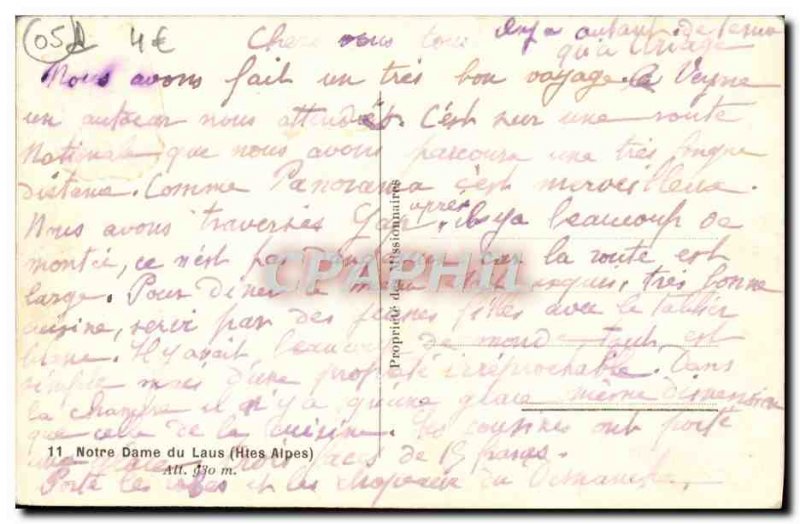 05
4€
Chers vous tous
Il y a autant de
qu'à Uriage
Nous avons fait un très bon voyage. à Veyne
un autocar nous attendait. C'est sur une route
Nationale que nous avons parcouru une très longue
distance. Comme Panorama c'est merveilleux.
Nous avons traversés Gap. après il y a beaucoup de
montée, ce n'est pas car la route est
large. Pour diner le très bonne
cuisine, servi par des jeunes filles avec le tablier
blanc. Il y avait beaucoup de monde tout est
simple mais d'une propreté irréprochable. Dans
la chambre il n'y a qu'une glace même dimension
que cele de la cuisine. Les cousines ont porté
une glace trois faces de 15 francs.
Porte les robes et les chapeaux du Dimanche.
CPAPHIL
Propriété des Missionnaires
11 Notre Dame du Laus (Htes Alpes)
Alt. 930 m.